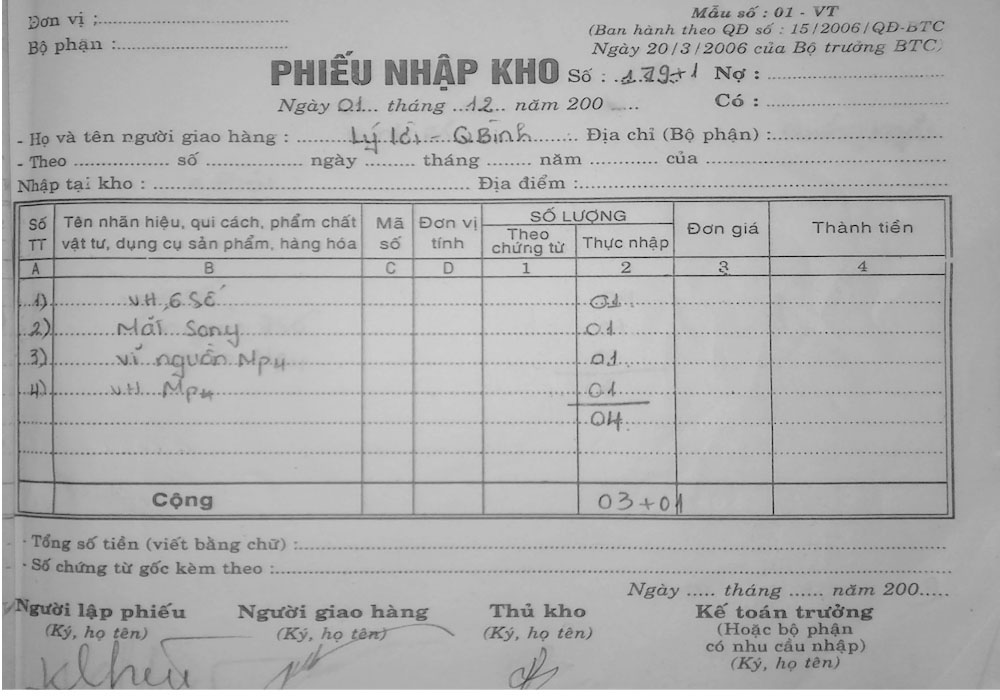 Đơn vị :..............................
Mẫu số : 01 - VT
Bộ phận :..............................
(Ban hành theo QĐ số : 15/2006/QĐ-BTC
Ngày 20/3/2006 của Bộ trưởng BTC)
PHIẾU NHẬP KHO Số : 179+1 Nợ : ..............................
Ngày 01... tháng ..12.. năm 200 ..... Có : ..............................
- Họ và tên người giao hàng : ....... Lý - Q Bình ....... Địa chỉ (Bộ phận) :..............................
- Theo .................. số .................. ngày ............ tháng ............ năm ............ của ..............................
Nhập tại kho : .................................................. Địa điểm :..................................................
Số TT Tên nhãn hiệu, qui cách, phẩm chất vật tư, dụng cụ sản phẩm, hàng hóa Mã số Đơn vị tính SỐ LƯỢNG Theo chứng từ Thực nhập Đơn giá Thành tiền
A B C D 1 2 3 4
1) VH 6 Số 01
2) Mắt Sony 01
3) Vỉ nguồn Mp4 01
4) VH Mp4 01
04
Cộng 03+01
- Tổng số tiền (viết bằng chữ) :..................................................
- Số chứng từ gốc kèm theo :..................................................
Ngày ..... tháng ...... năm 200.....
Người lập phiếu Người giao hàng Thủ kho Kế toán trưởng
(Ký, họ tên) (Ký, họ tên) (Ký, họ tên) (Hoặc bộ phận
có nhu cầu nhập)
(Ký, họ tên)